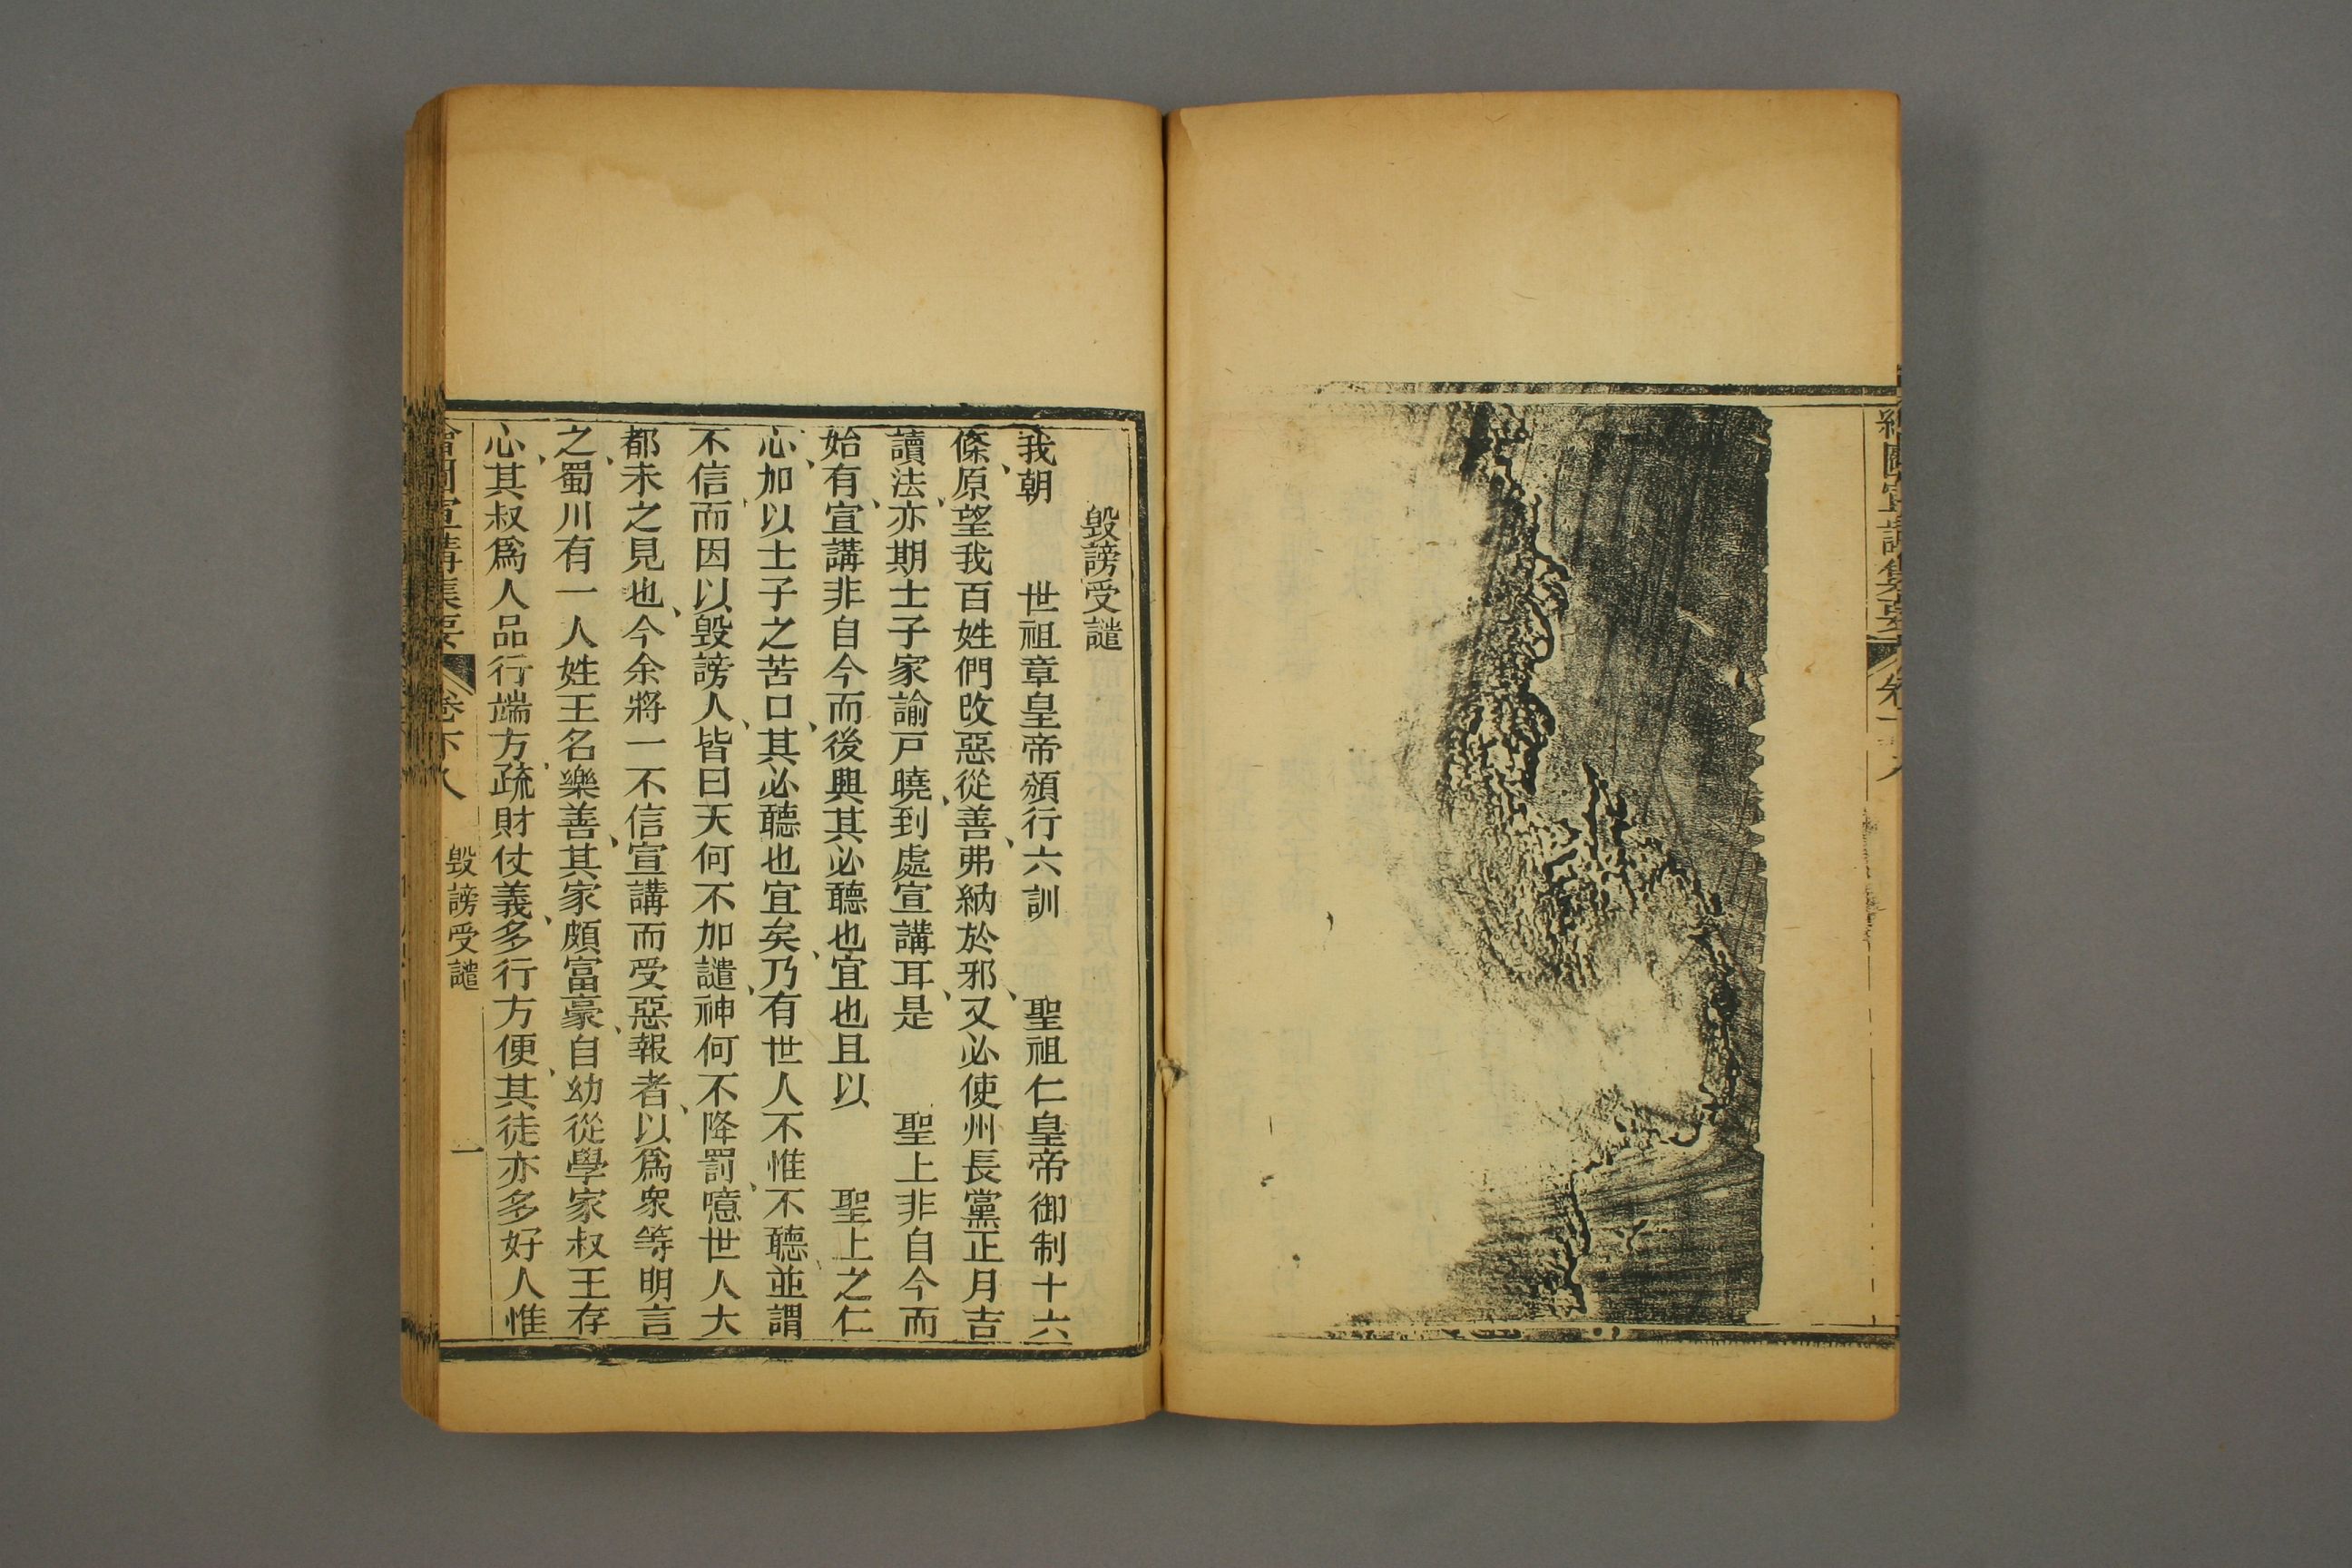 毀謗受譴
我朝　世祖章皇帝頒行六訓　聖祖仁皇帝御制十六
條、原望我百姓們改惡從善、弗納於邪、又必使州長黨正月吉
讀法、亦期士子家諭戸曉、到處宣講耳、是　聖上非自今而
始有、宣講非自今而後興其必聽也宜也且以　聖上之仁
心、加以士子之苦口、其必聽也宜矣、乃有世人不惟不聽、並謂
不信、而因以毀謗人、皆曰天何不加譴、神何不降罰、噫世人大
都未之見也、今余將一不信宣講而受惡報者、以爲衆等明言
之、蜀川有一人姓王名樂善、其家頗富豪、自幼從學家叔王存
心、其叔爲人品行端方、疏財仗義、多行方便、其徒亦多好人惟
繪圖宣講集要
卷下八
毀謗受譴
一